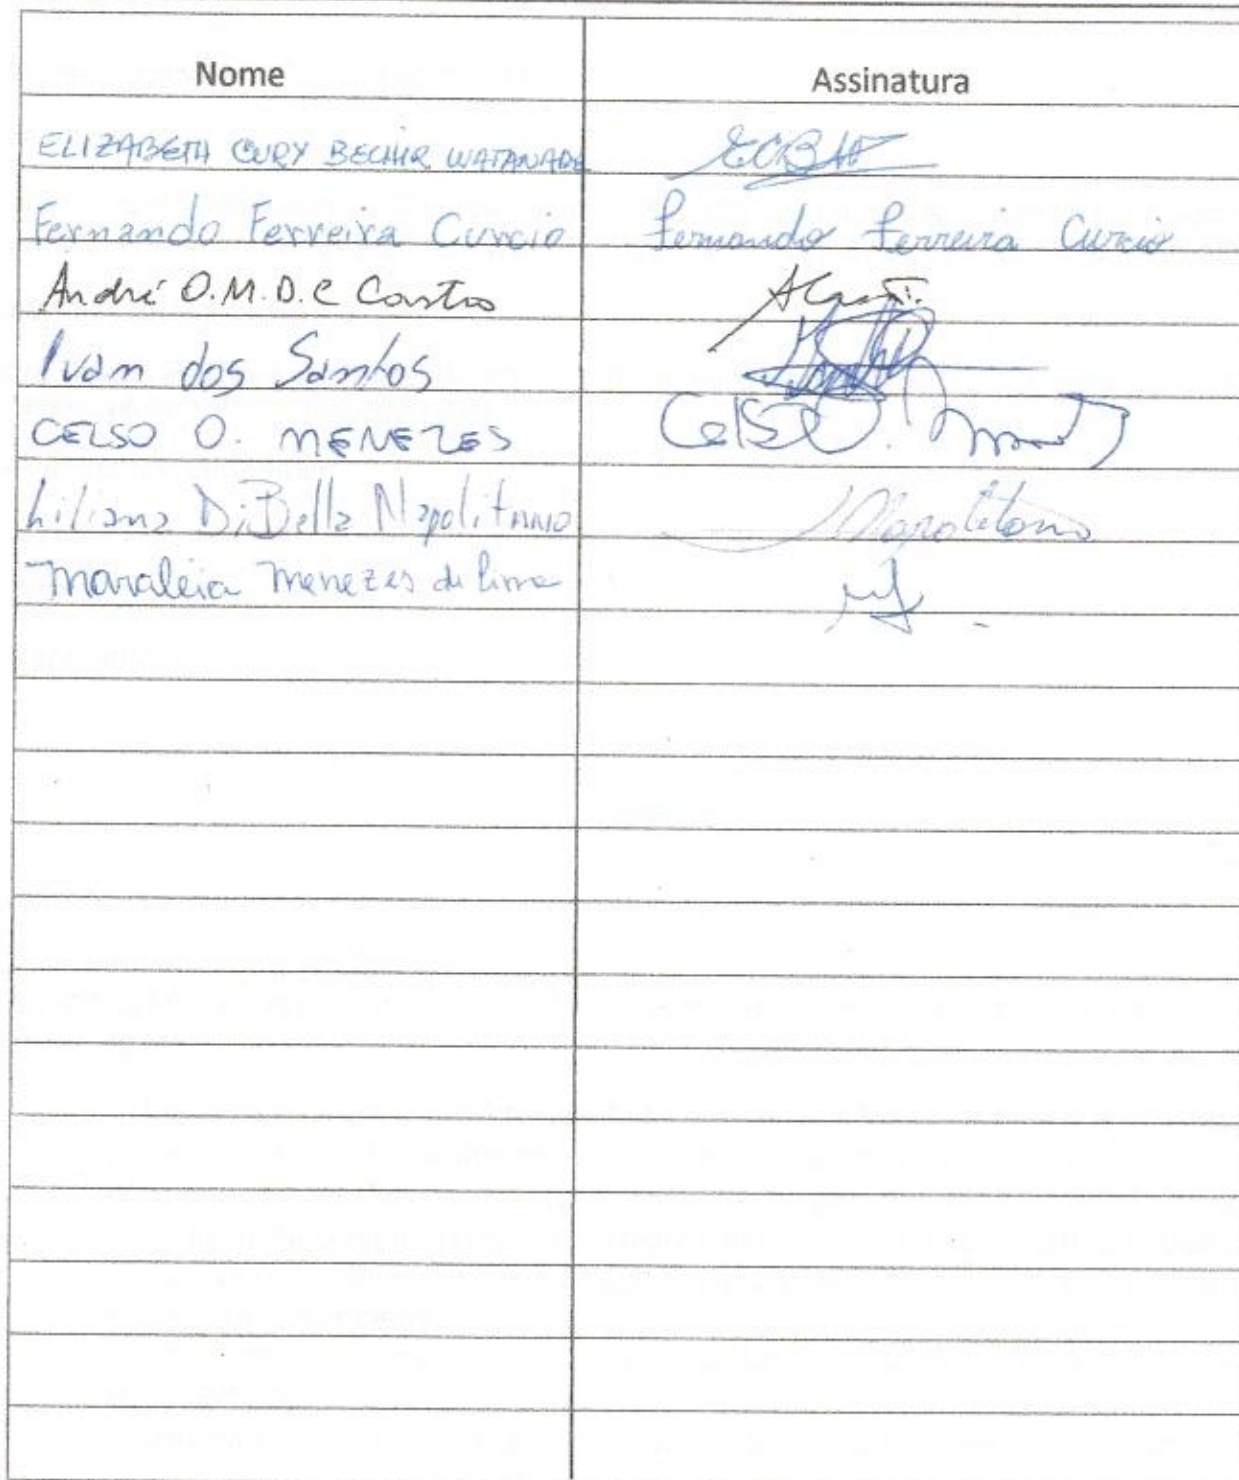 Nome Assinatura
ELIZABETH CURY BECHIR WATANABE ECBW
Fernando Ferreira Curcio Fernando Ferreira Curcio
André O.M.D.C Castro ACastro
Ivan dos Santos
CELSO O. MENEZES Celso O.
Liliana Di Bella Napolitano Napolitano
Maraleia Menezes de Lima